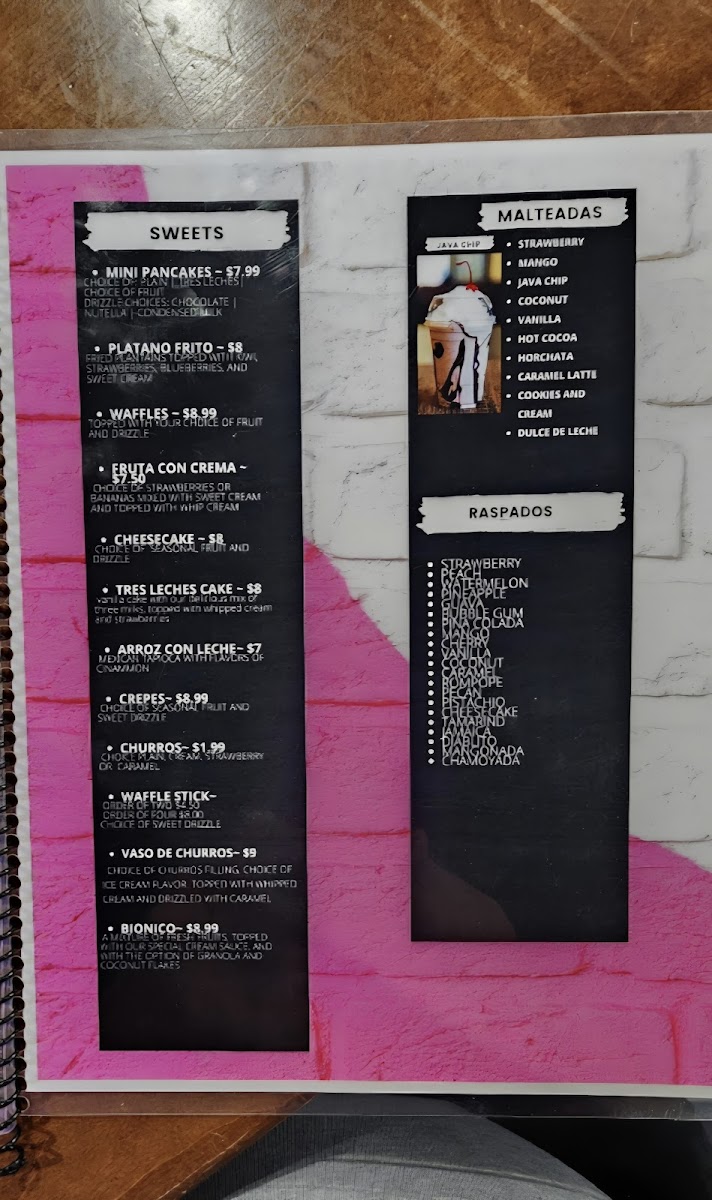 SWEETS
• MINI PANCAKES ~ $7.99
CHOICE OF: PLAIN | TRES LECHES|
CHOICE OF FRUIT
DRIZZLE CHOICES: CHOCOLATE |
NUTELLA | CONDENSED MILK
• PLATANO FRITO ~ $8
FRIED PLANTAINS TOPPED WITH KIWI,
STRAWBERRIES, BLUEBERRIES, AND
SWEET CREAM
• WAFFLES ~ $8.99
TOPPED WITH YOUR CHOICE OF FRUIT
AND DRIZZLE
• FRUTA CON CREMA ~
$7.50
CHOICE OF STRAWBERRIES OR
BANANAS MIXED WITH SWEET CREAM
AND TOPPED WITH WHIP CREAM
• CHEESECAKE ~ $8
CHOICE OF SEASONAL FRUIT AND
DRIZZLE
• TRES LECHES CAKE ~ $8
vanilla cake with our delicious mix of
three milks, topped with whipped cream
and strawberries
• ARROZ CON LECHE~ $7
MEXICAN TAPIOCA WITH FLAVORS OF
CINAMMON
• CREPES~ $8.99
CHOICE OF SEASONAL FRUIT AND
SWEET DRIZZLE
• CHURROS~ $1.99
CHOICE PLAIN, CREAM, STRAWBERRY
OR CARAMEL
• WAFFLE STICK~
ORDER OF TWO $4.50
ORDER OF FOUR $8.00
CHOICE OF SWEET DRIZZLE
• VASO DE CHURROS~ $9
CHOICE OF CHURROS FILLING, CHOICE OF
ICE CREAM FLAVOR TOPPED WITH WHIPPED
CREAM AND DRIZZLED WITH CARAMEL
• BIONICO~ $8.99
A MIXTURE OF FRESH FRUITS, TOPPED
WITH OUR SPECIAL CREAM SAUCE, AND
WITH THE OPTION OF GRANOLA AND
COCONUT FLAKES
MALTEADAS
JAVA CHIP
• STRAWBERRY
• MANGO
• JAVA CHIP
• COCONUT
• VANILLA
• HOT COCOA
• HORCHATA
• CARAMEL LATTE
• COOKIES AND
CREAM
• DULCE DE LECHE
RASPADOS
• STRAWBERRY
• PEACH
• WATERMELON
• PINEAPPLE
• BUBBLE GUM
• PINA COLADA
• MANGO
• CHERRY
• VANILLA
• COCONUT
• CARAMEL
• ROMPOPE
• PECAN
• PISTACHIO
• CHEESECAKE
• TAMARIND
• JAMAICA
• DIABLITO
• MANGONADA
• CHAMOYADA